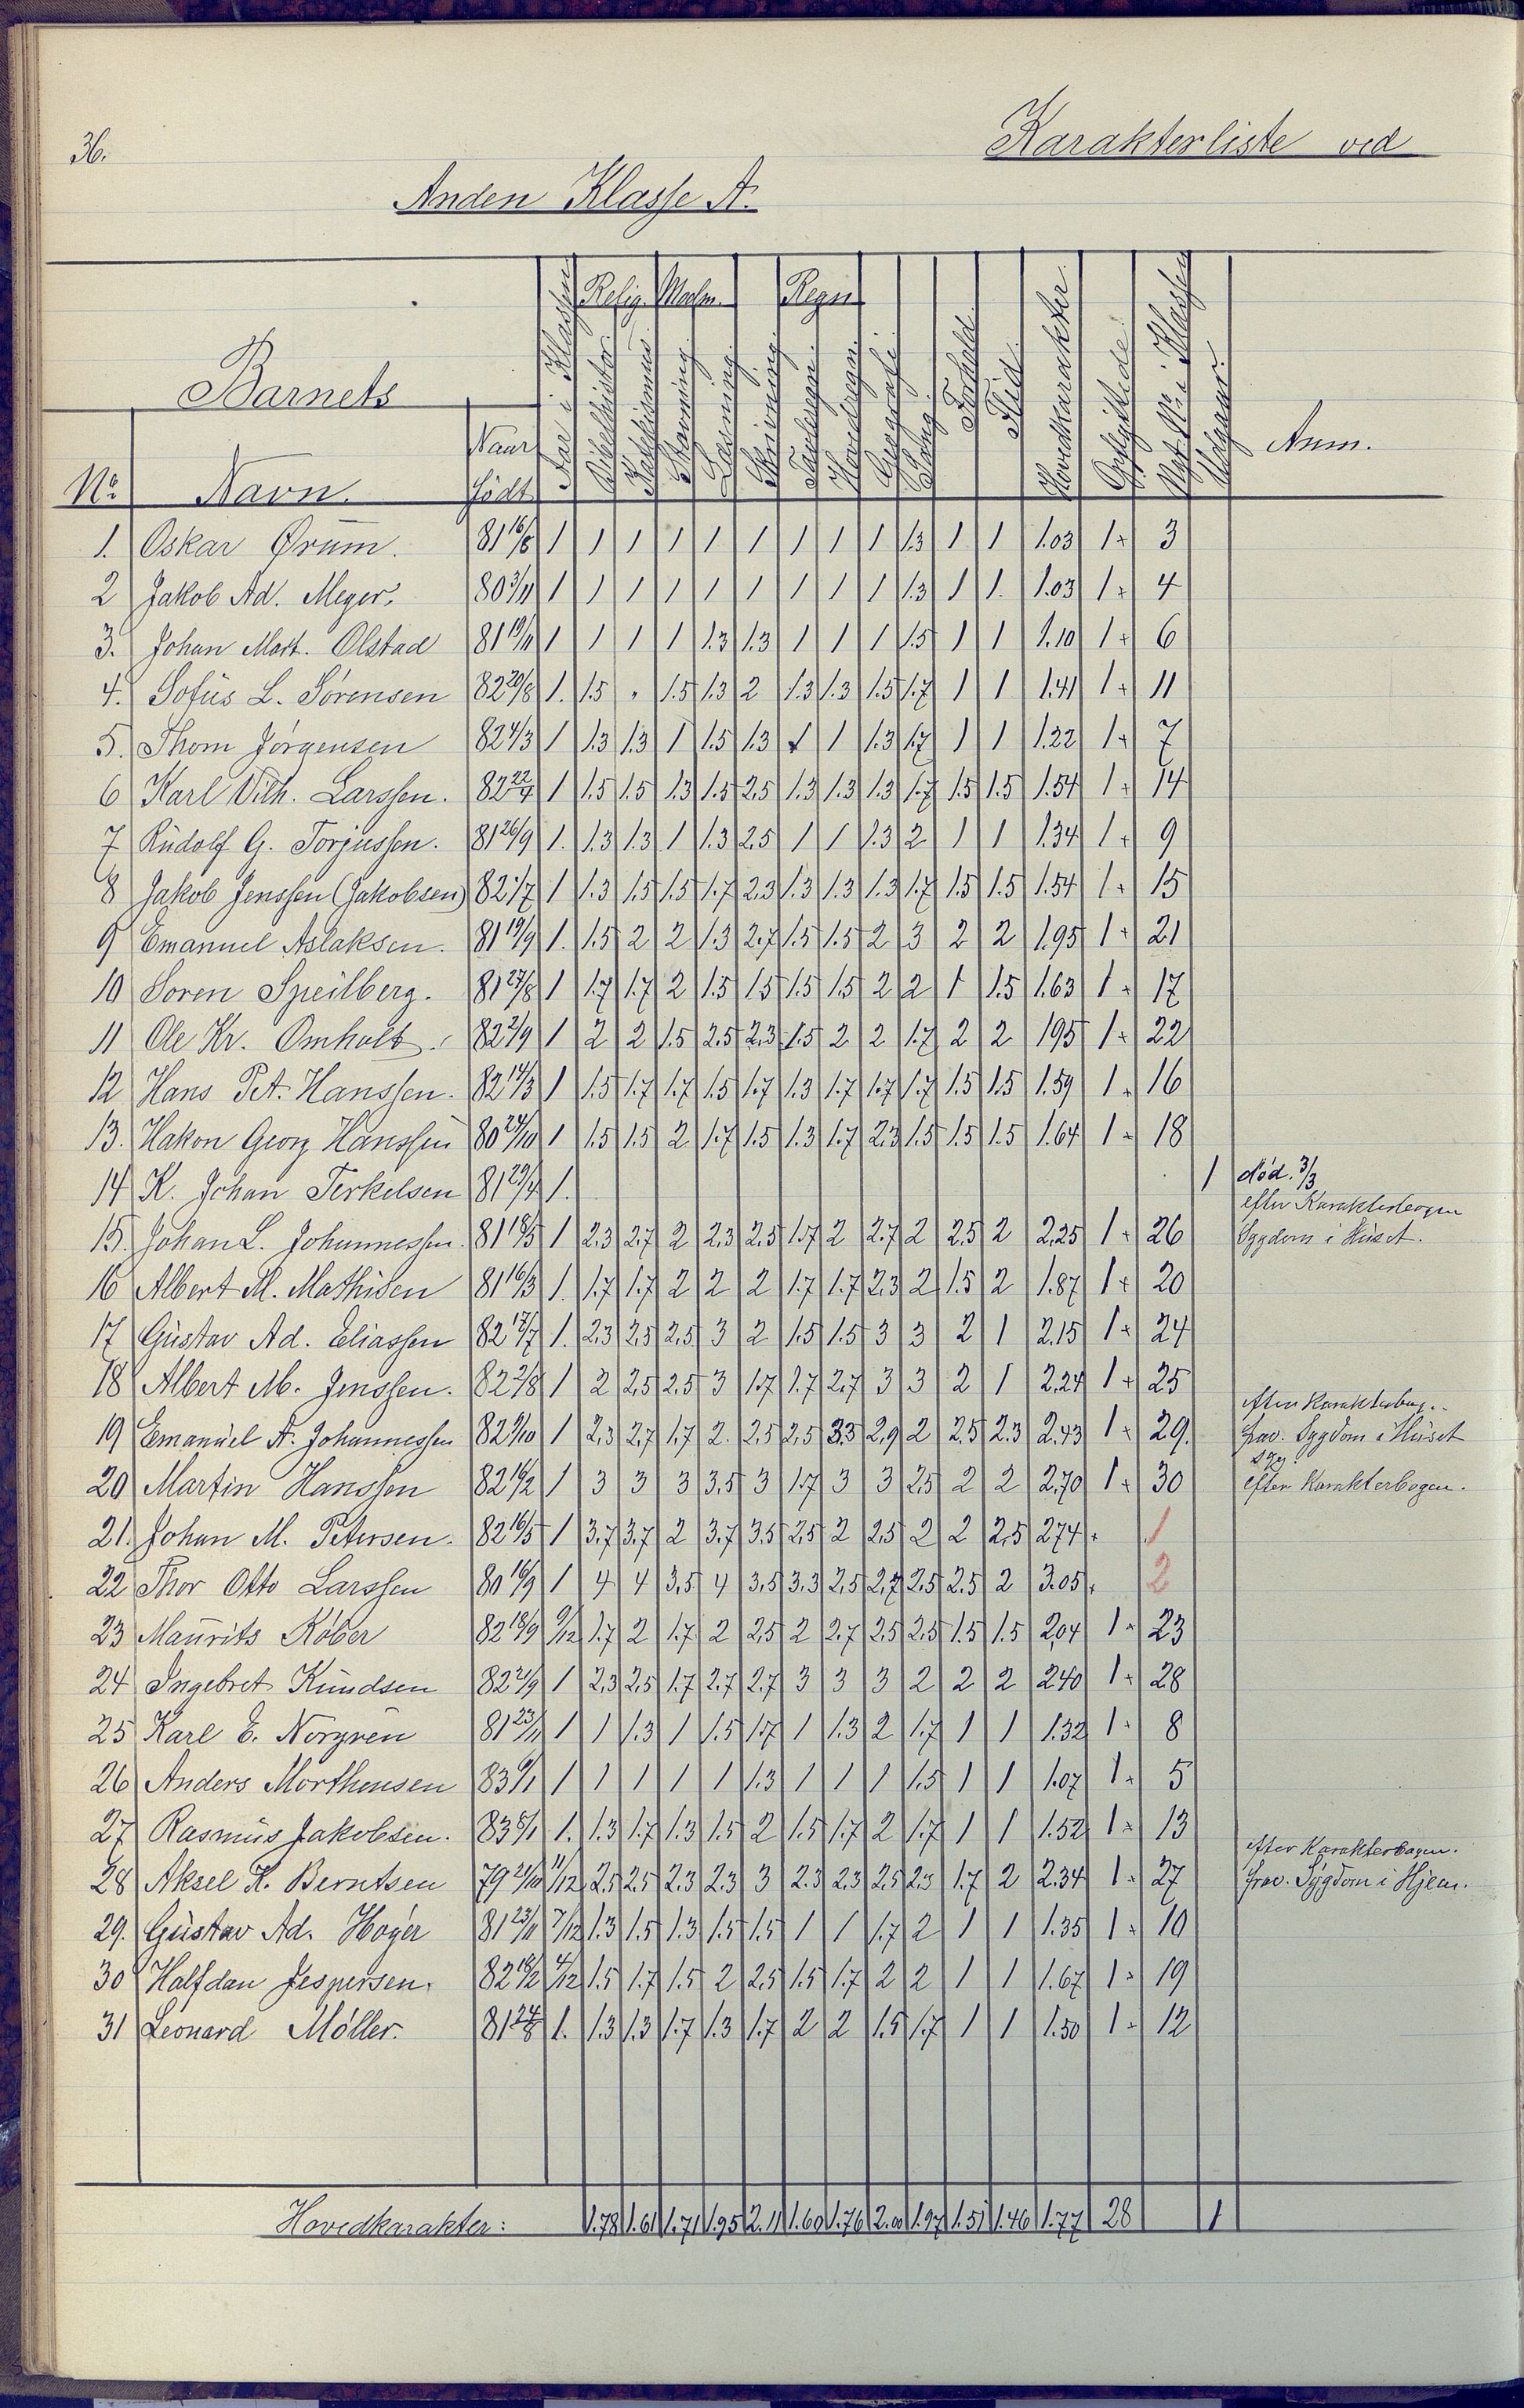 36.
Karakterliste ved
Anden Klasse A.
Relig. Modsm. Regn.
Barnets
Aar i Klassen Bibelhistor. Katekismus Stavning. Læsning. Skrivning. Tavleregn. Hovedregn. Geografi. Sang. Forhold Flid. Hovedkarakter. Opflyttede. Nyt No. i Klassen Udgaar. Anm.
No. Navn. Naar født
1. Oskar Ørum. 81 16/8 1 1 1 1 1 1 1 1 1 1.3 1 1 1.03 1 + 3
2 Jakob Ad. Meyer. 80 3/11 1 1 1 1 1 1 1 1 1 1.3 1 1. 1.03 1 + 4
3. Johan Mart. Olstad 81 19/11 1 1 1 1 1.3 1.3 1 1 1 1.5 1 1 1.10 1 + 6
4. Sofus L. Sørensen 82 20/8 1. 1.5 " 1.5 1.3 2 1.3 1.3 1.5 1.7 1 1 1.41 1 + 11
5. Thom Jørgensen 82 4/3 1 1.3 1.3 1 1.5 1.3 1 1 1.3 1.7 1 1 1.22 1 + 7
6 Karl Vilh. Larssen. 82 22/4 1 1.5 1.5 1.3 1.5 2.5 1.3 1.3 1.3 1.7 1.5 1.5 1.54 1 + 14
7 Rudolf G. Torjussen. 81 26/9 1. 1.3 1.3 1 1.3 2.5 1 1 1.3 2 1 1 1.34 1 + 9
8 Jakob Jenssen (Jakobsen) 82 1/7 1 1.3 1.5 1.5 1.7 2.3 1.3 1.3 1.3 1.7 1.5 1.5 1.54 1 + 15
9 Emanuel Aslaksen. 81 19/9 1. 1.5 2 2 1.3 2.7 1.5 1.5 2 3 2 2 1.95 1 + 21
10 Soren Speilberg. 81 27/8 1 1.7 1.7 2 1.5 1.5 1.5 1.5 2 2 1 1.5 1.63 1 + 17
11 Ole Kr. Omholt. 82 2/9 1 2 2 1.5 2.5 2.3 1.5 2 2 1.7 2 2 1.95 1 + 22
12 Hans Pet. Hanssen. 82 14/3 1 1.5 1.7 1.7 1.5 1.7 1.3 1.7 1.7 1.7 1.5 1.5 1.59 1 + 16
13. Hakon Georg Hanssen 80 24/10 1 1.5 1.5 2 1.7 1.5 1.3 1.7 2.3 1.5 1.5 1.5 1.64 1 + 18
14 K. Johan Terkelsen 81 29/4 1. 1 død. 3/3
efter Karakterbogen
15. Johan L. Johannessen. 81 18/5 1 2.3 2.7 2 2.3 2.5 1.7 2 2.7 2 2.5 2 2.25 1 + 26 Sygdom i Huset.
16 Albert M. Mathisen 81 16/3 1. 1.7 1.7 2 2 2 1.7 1.7 2.3 2 1.5 2 1.87 1 + 20
17 Gustav Ad. Eliassen 82 17/7 1. 2.3 2.5 2.5 3 2 1.5 1.5 3 3 2 1 2.15 1 + 24
18 Albert M. Jenssen. 82 2/8 1 2 2.5 2.5 3 1.7 1.7 2.7 3 3 2 1 2.24 1 + 25
efter Karakterbog.
19 Emanuel A. Johannessen 82 9/10 1 2.3 2.7 1.7 2. 2.5 2.5 3.3 2.9 2 2.5 2.3 2.43 1 + 29. frav. Sygdom i Huset
syg.
20 Martin Hanssen 82 16/2 1 3 3 3 3.5 3 1.7 3 3 2.5 2 2 2.70 1 + 30 efter Karakterbogen.
21. Johan M. Petersen. 82 16/5 1 3.7 3.7 2 3.7 3.5 2.5 2 2.5 2 2 2.5 2.74 + 1
22 Thor Otto Larssen 80 16/9 1 4 4 3.5 4 3.5 3.3 2.5 2.7 2.5 2.5 2 3.05 + 2
23 Maurits Köber 82 18/9 9/12 1.7 2 1.7 2 2.5 2 2.7 2.5 2.5 1.5 1.5 2.04 1 + 23
24 Ingebret Knudsen 82 21/9 1 2.3 2.5 1.7 2.7 2.7 3 3 3 2 2 2 2.40 1 + 28
25 Karl E. Norgren 81 23/11 1 1 1.3 1 1.5 1.7 1 1.3 2 1.7 1 1 1.32 1 + 8
26 Anders Morthensen 83 6/1 1 1 1 1 1 1.3 1 1 1 1.5 1 1 1.07 1 + 5
27 Rasmus Jakobsen. 83 8/1 1. 1.3 1.7 1.3 1.5 2 1.5 1.7 2 1.7 1 1 1.52 1 + 13
efter Karakterbogen.
28 Aksel K. Berntsen 79 21/10 11/12 2.5 2.5 2.3 2.3 3 2.3 2.3 2.5 2.3 1.7 2 2.34 1 + 27 frav. Sygdom i Hjem.
29. Gustav Ad. Høyer 81 23/11 7/12 1.3 1.5 1.3 1.5 1.5 1 1 1.7 2 1 1 1.35 1 + 10
30 Halfdan Jespersen. 82 18/2 4/12 1.5 1.7 1.5 2 2.5 1.5 1.7 2 2 1 1 1.67 1 + 19
31 Leonard Møller. 81 24/8 1. 1.3 1.3 1.7 1.3 1.7 2 2 1.5 1.7 1 1 1.50 1 + 12
Hovedkarakter: 1.78 1.61 1.71 1.95 2.11 1.60 1.76 2.00 1.97 1.51 1.46 1.77 28 1